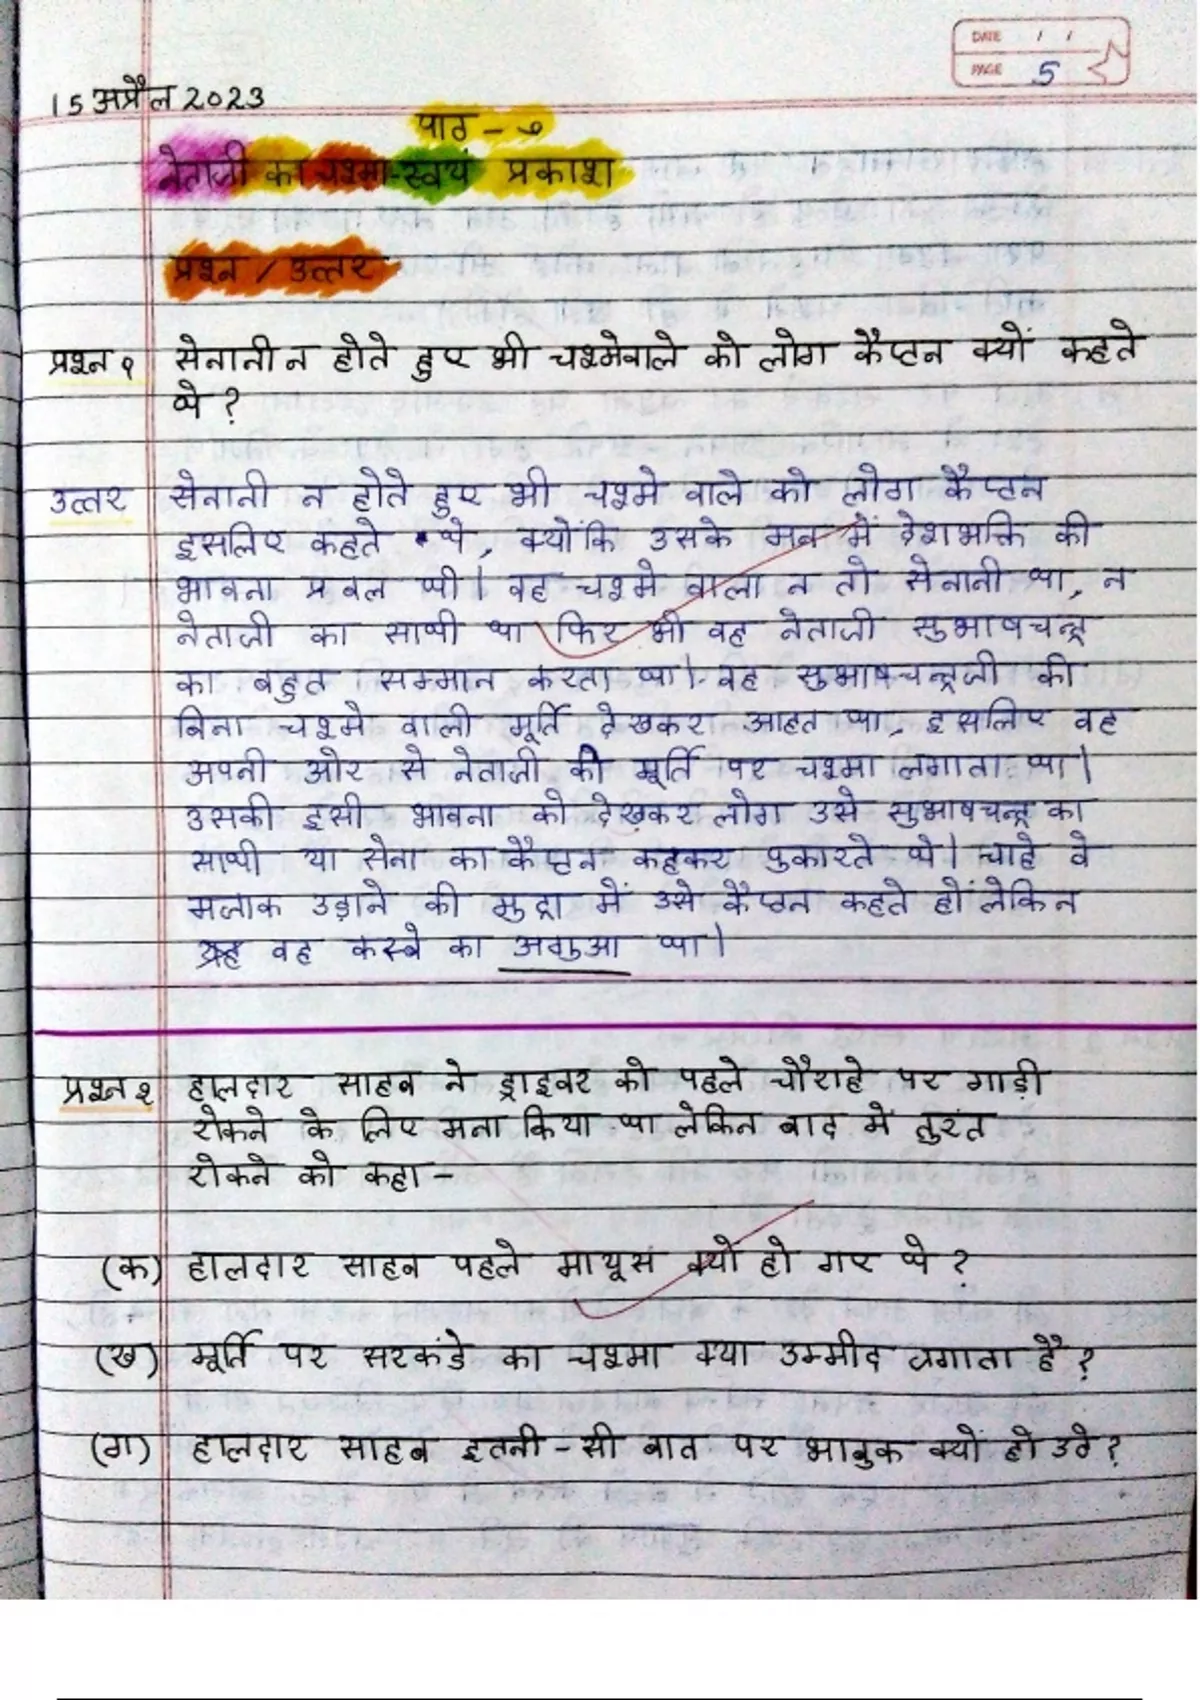 DATE / /
PAGE 5
15 अप्रैल 2023
पाठ - ७
नेताजी का चश्मा-स्वयं प्रकाश
प्रश्न / उत्तर
प्रश्न १ सेनानी न होते हुए भी चश्मेवाले को लोग कैप्टन क्यों कहते
थे ?
उत्तर सेनानी न होते हुए भी चश्मे वाले को लोग कैप्टन
इसलिए कहते थे, क्योंकि उसके मन में देशभक्ति की
भावना प्रबल थी। वह चश्मे वाला न तो सेनानी था, न
नेताजी का साथी था फिर भी वह नेताजी सुभाषचन्द्र
का बहुत सम्मान करता था। वह सुभाषचन्द्रजी की
बिना चश्मे वाली मूर्ति देखकर आहत था, इसलिए वह
अपनी ओर से नेताजी की मूर्ति पर चश्मा लगाता था।
उसकी इसी भावना को देखकर लोग उसे सुभाषचन्द्र का
साथी या सेना का कैप्टन कहकर पुकारते थे। चाहे वे
मजाक उड़ाने की मुद्रा में उसे कैप्टन कहते हों लेकिन
वह कस्बे का अगुआ था।
प्रश्न २ हालदार साहब ने ड्राइवर को पहले चौराहे पर गाड़ी
रोकने के लिए मना किया था लेकिन बाद में तुरंत
रोकने को कहा -
(क) हालदार साहब पहले मायूस क्यों हो गए थे ?
(ख) मूर्ति पर सरकंडे का चश्मा क्या उम्मीद जगाता है ?
(ग) हालदार साहब इतनी - सी बात पर भावुक क्यों हो उठे ?